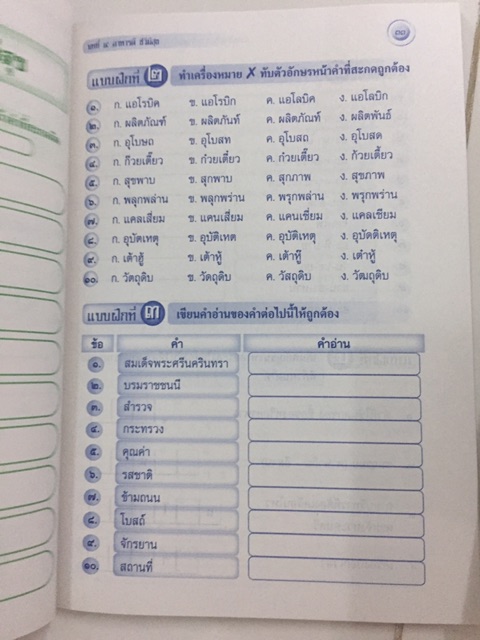 บทที่ ๔ อาหารดี ชีวีมีสุข
๓๓
แบบฝึกที่ ๒ ทำเครื่องหมาย ✗ ทับตัวอักษรหน้าคำที่สะกดถูกต้อง
๑. ก. แอโรบิค ข. แอโรบิก ค. แอโลบิค ง. แอโลบิก
๒. ก. ผลิตภัณฑ์ ข. ผลิตภันท์ ค. ผลิตภัณท์ ง. ผลิตพันธ์
๓. ก. อุโบษถ ข. อุโบสท ค. อุโบสถ ง. อุโบสด
๔. ก. ก๊วยเตี๋ยว ข. ก๋วยเตี๋ยว ค. ก๋วยเตี๊ยว ง. ก้วยเตี๋ยว
๕. ก. สุขพาบ ข. สุกพาบ ค. สุกภาพ ง. สุขภาพ
๖. ก. พลุกพล่าน ข. พลุกพร่าน ค. พรุกพล่าน ง. พรุกพร่าน
๗. ก. แคลเสี่ยม ข. แคนเสี่ยม ค. แคนเซี่ยม ง. แคลเซียม
๘. ก. อุบัดเหตุ ข. อุบัติเหต ค. อุบัติเหตุ ง. อุบัดติเหตุ
๙. ก. เต้าฮู้ ข. เต้าหู้ ค. เต้าหู๊ ง. เต๊าหู้
๑๐. ก. วัตถุดิบ ข. วัดถุดิบ ค. วัสถุดิบ ง. วัฒถุดิบ
แบบฝึกที่ ๓ เขียนคำอ่านของคำต่อไปนี้ให้ถูกต้อง
ข้อ คำ คำอ่าน
๑. สมเด็จพระศรีนครินทรา
๒. บรมราชชนนี
๓. สำรวจ
๔. กระทรวง
๕. คุณค่า
๖. รสชาติ
๗. ข้ามถนน
๘. โบสถ์
๙. จักรยาน
๑๐. สถานที่